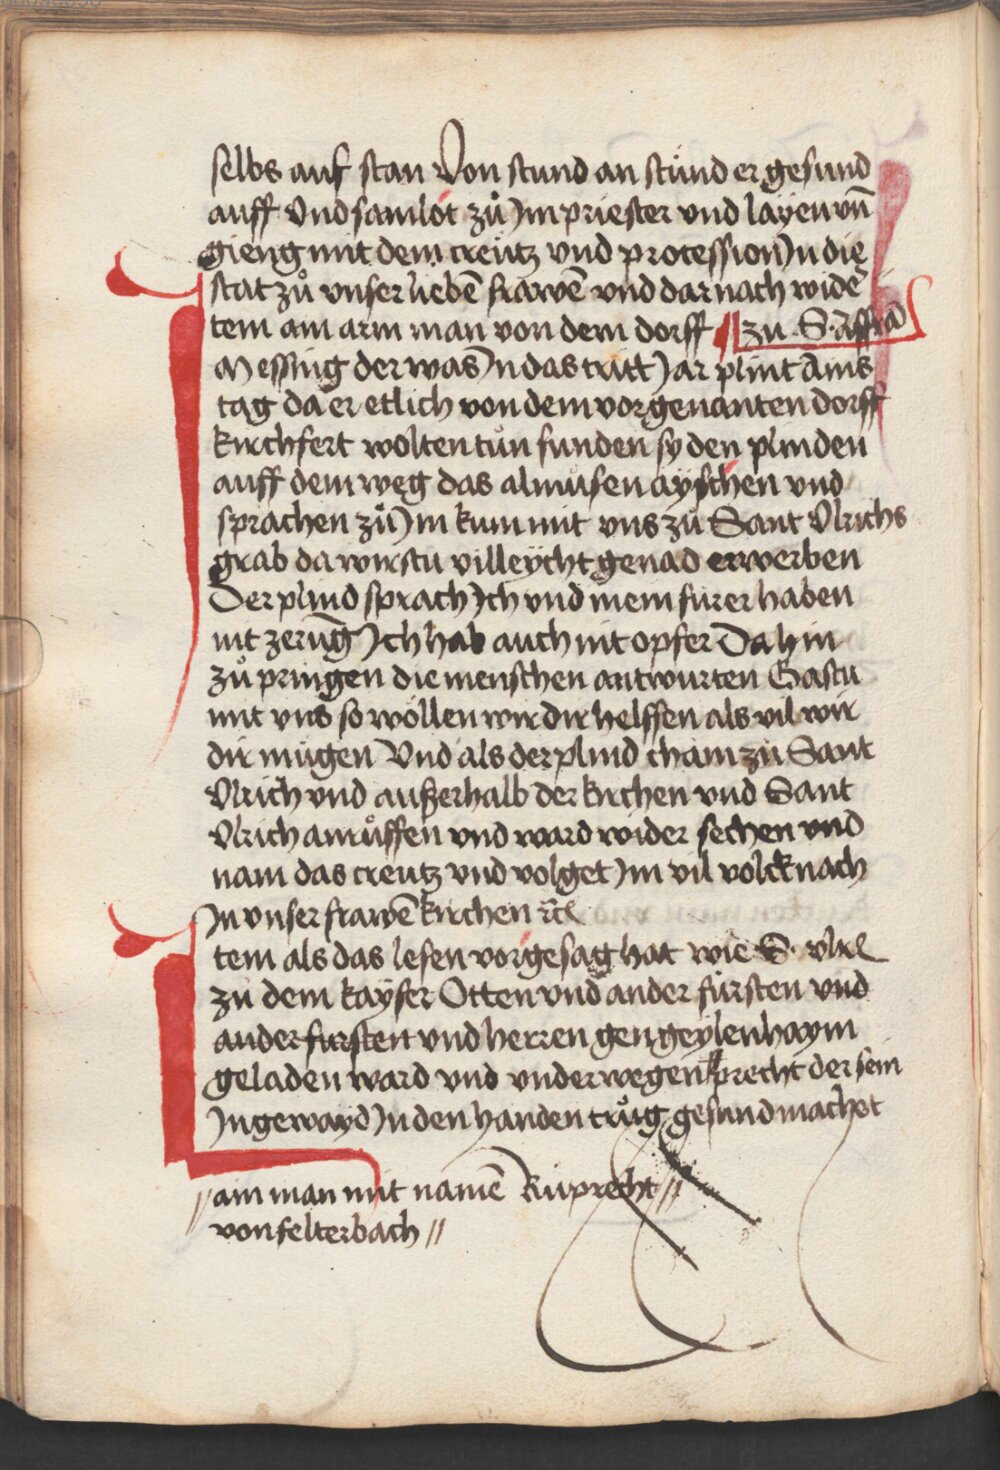 selbs auf stan Von stund an stůnd er gesund
auff Vnd samlot zů Jm priester vnd layen vn̄
gieng mit dem creütz vnd procession Jn die
stat zů vnser lieben̄ frawen̄ vnd darnach wide᷑
Item am arm man von dem dorff // zu S. Affra
Messing der was Jn das tritt Jar plint Ains
tag da er etlich von dem vorgenanten dorff
kirchfert wolten tůn funden sy den plinden
auff dem weg das almůsen ayschen vnd
sprachen zů Jm kum mit vns zů Sant Vlrichs
grab da wirstu villeycht genad erwerben
Der plind sprach Ich vnd mein fürer haben
nit zerunḡ Ich hab auch nit opfer Da hin
zů pringen die menschen antwurten Gastu
mit vns so wöllen wir dir helffen als vil wir
dir mügen Vnd als der plind cham zů Sant
Vlrich vnd außerhalb der kirchen vnd Sant
Vlrich anrůffen vnd ward wider sechen vnd
nam das creutz vnd volget Jm vil volck nach
Jn vnser frawen̄ kirchen ꝛc̄
Item als das lesen vorgesag hat wie S. vlrı̄
zů dem kayser Otten vnd ander fürsten vnd
ander fürsten vnd herren gen geylenhaym
geladen ward vnd vnderwegen precht der sein
Jngewayd Jn den handen trůg gesund machet
// am man mit namen̄ Ruprecht //
von felterbach //